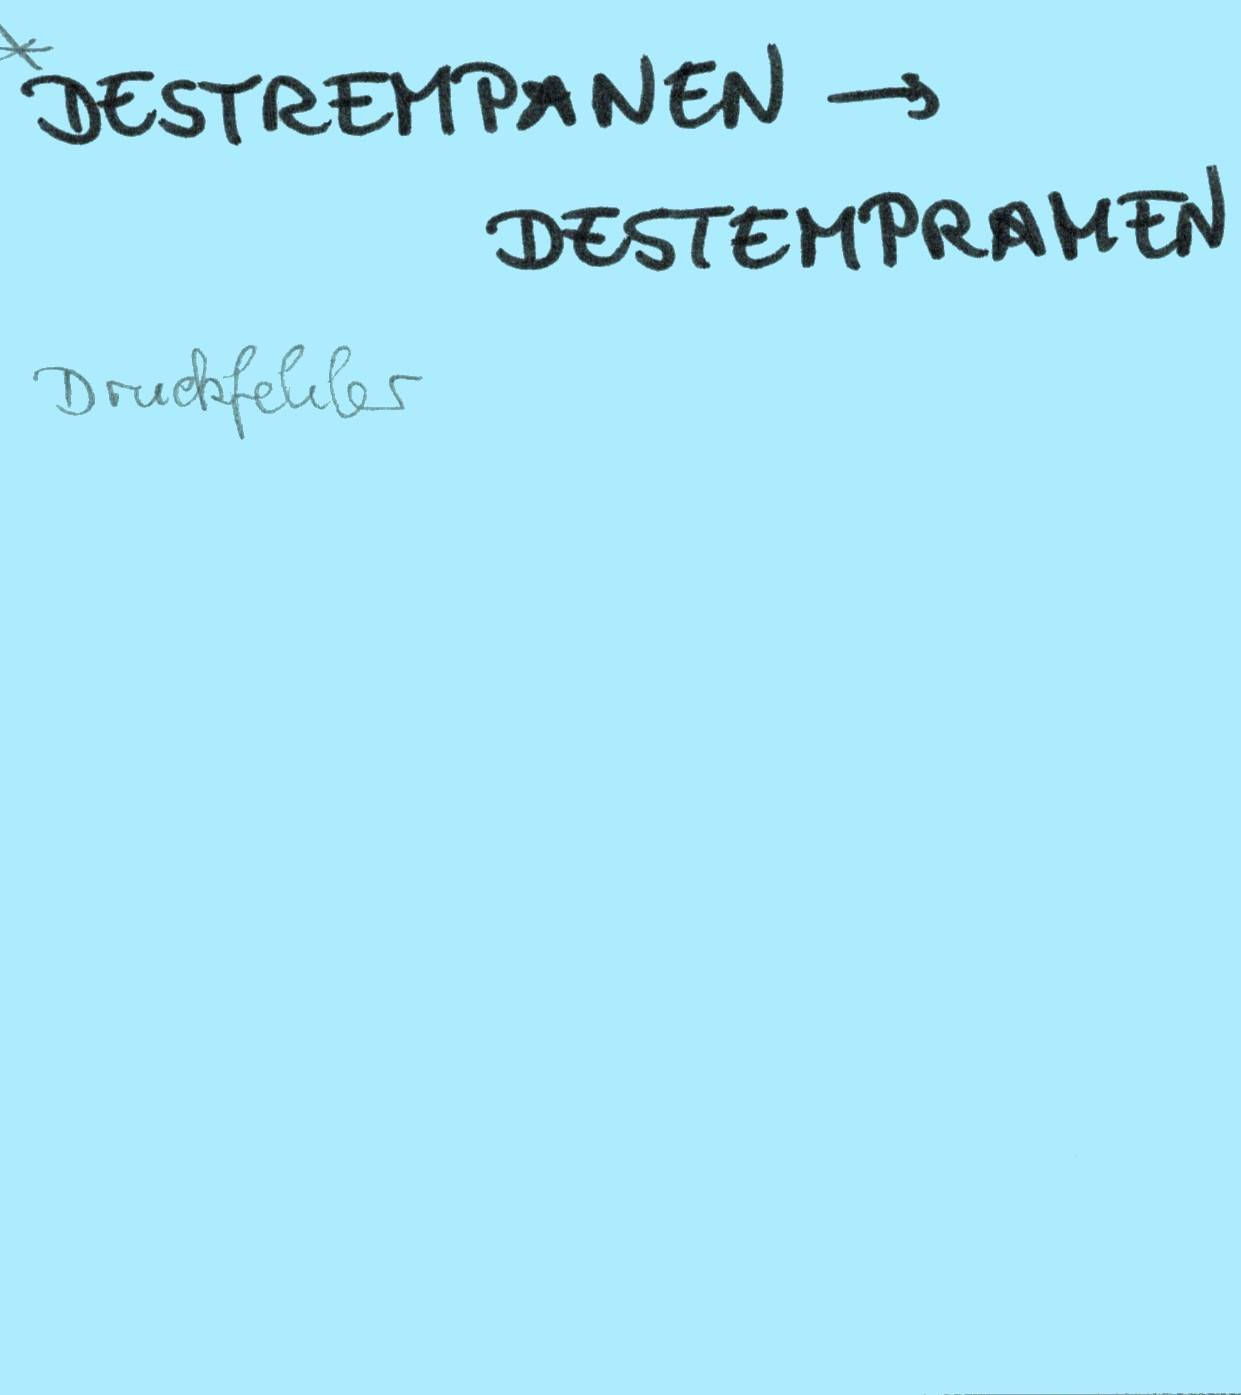 * DESTREMPANEN →
DESTEMPRAMEN
Druckfehler